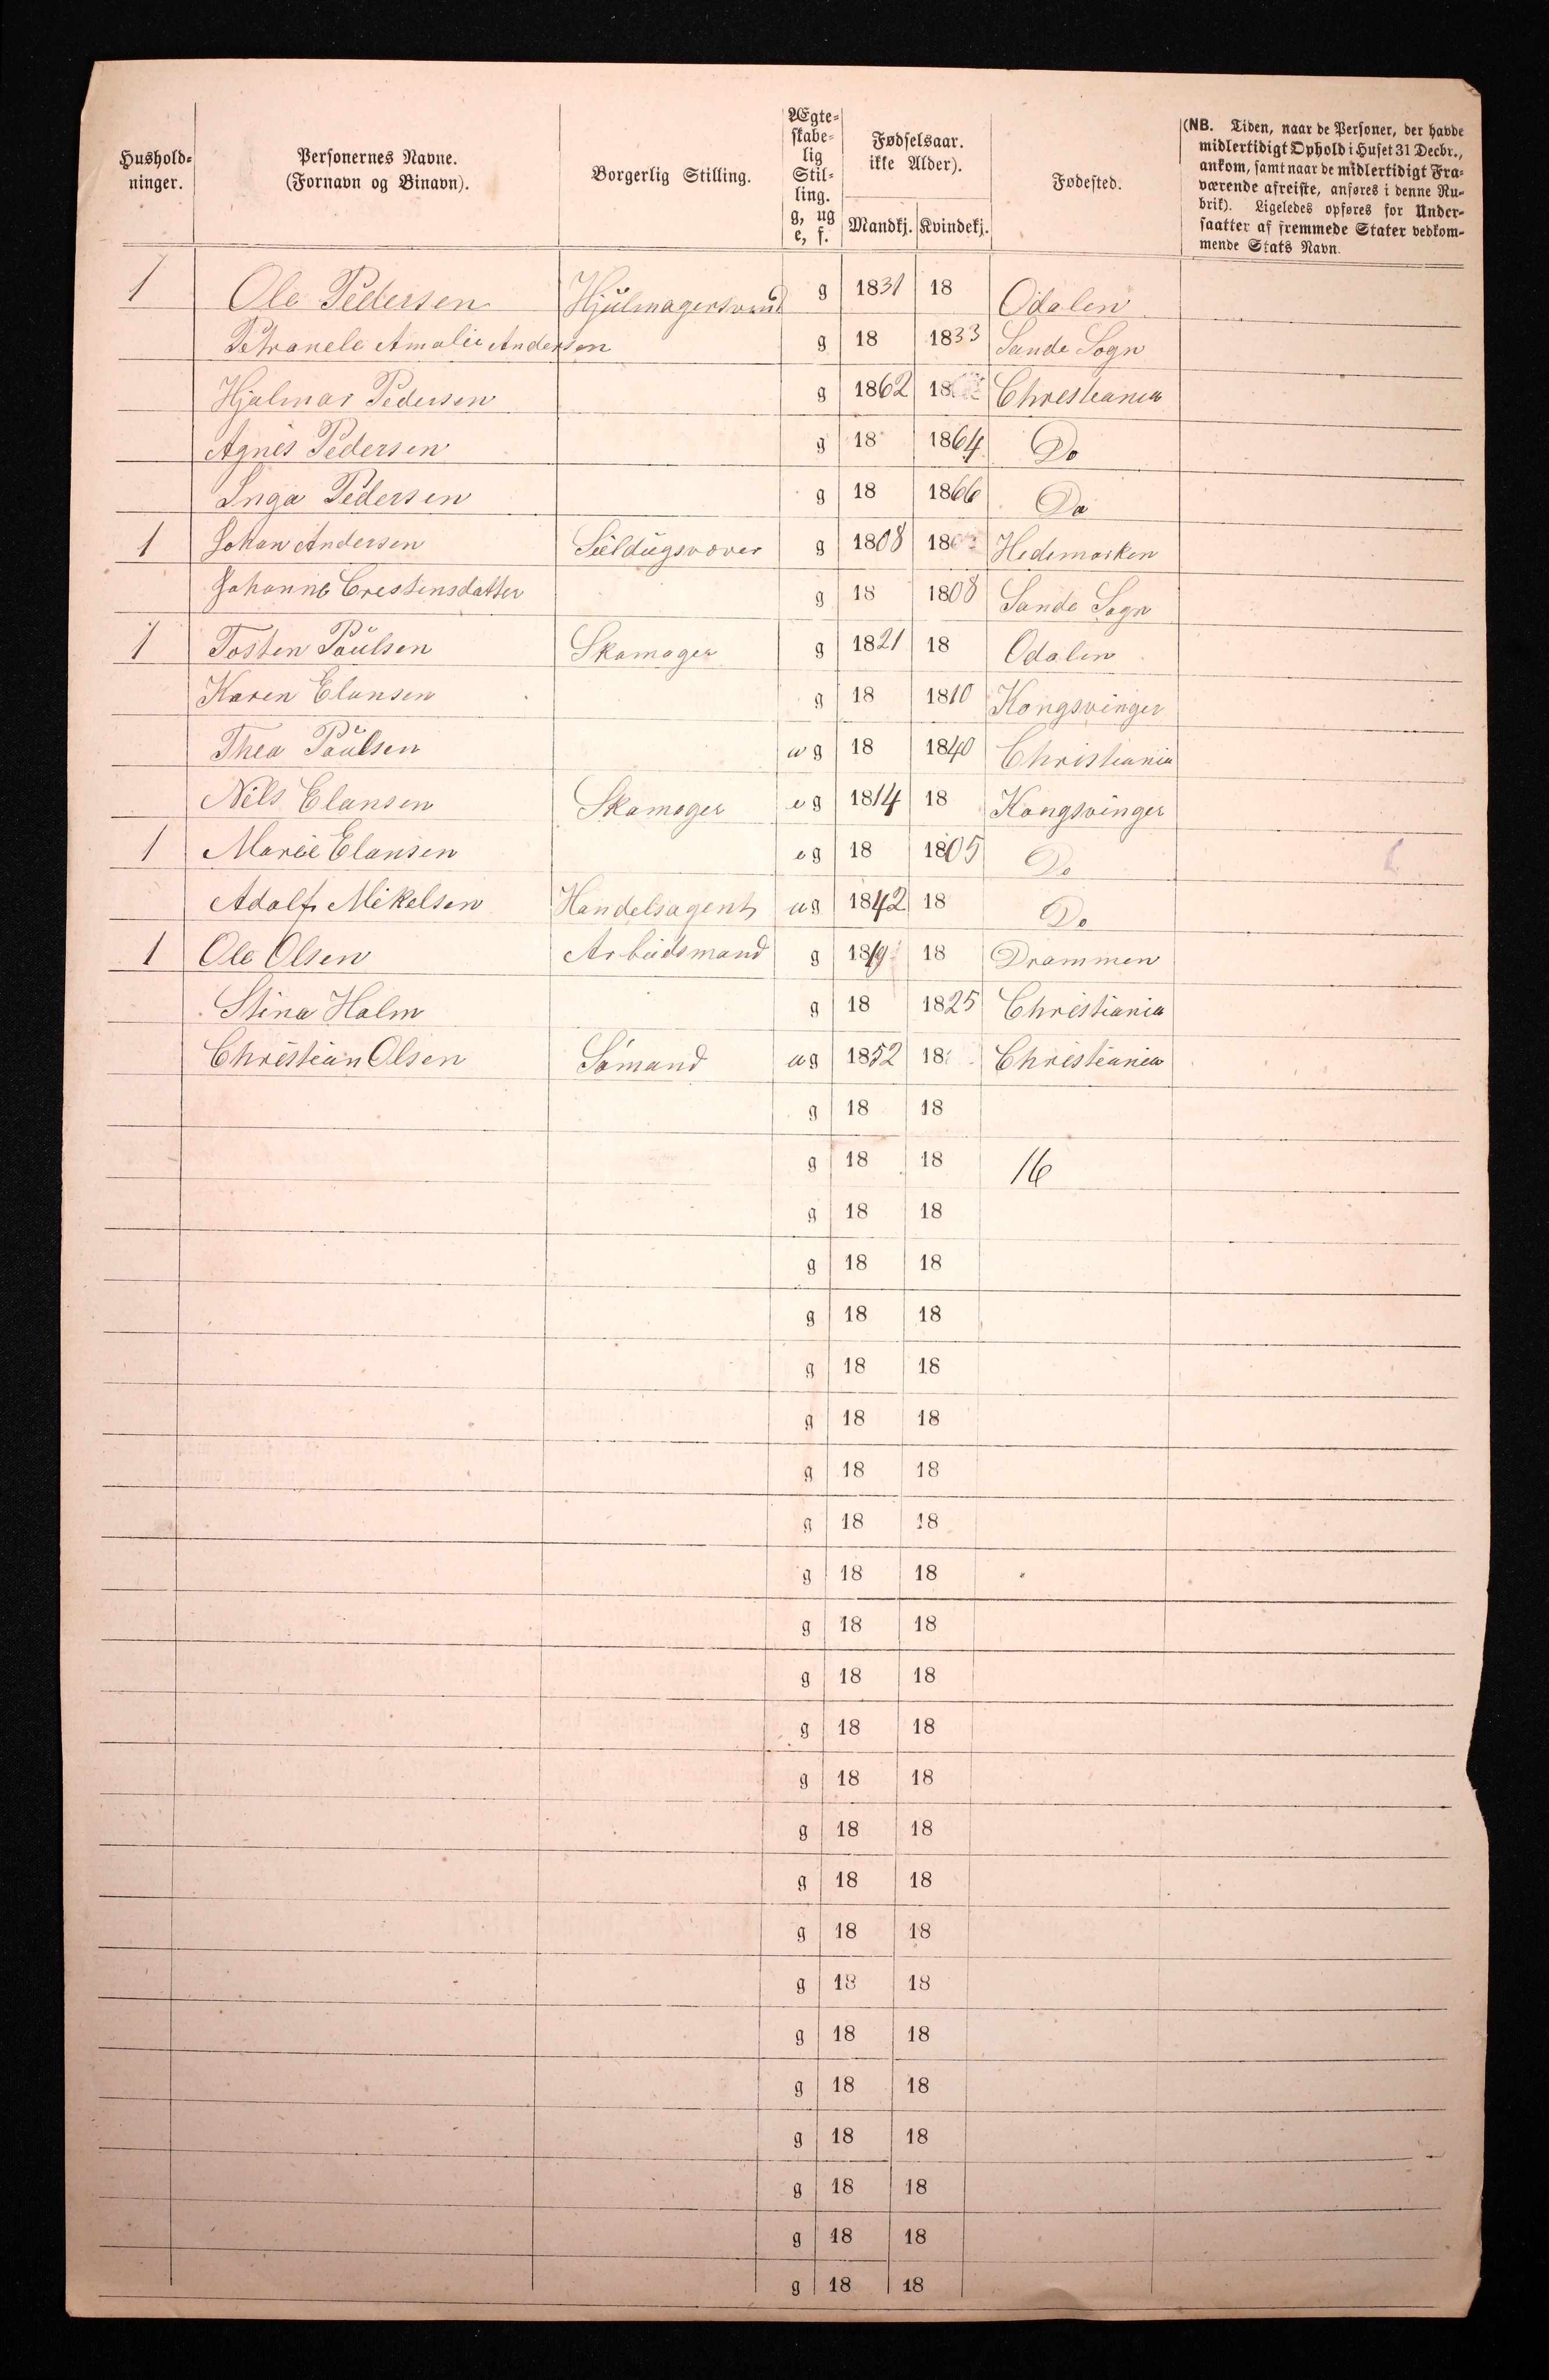 Hushold-ninger. Personernes Navne. (Fornavn og Binavn). Borgerlig Stilling. Ægte-skabe-lig Stil-ling. g, ug e, f. Fødselsaar. ikke Alder). Mandkj. Kvindekj. Fødested. (NB. Tiden, naar de Personer, der havde midlertidigt Ophold i Huset 31 Decbr., ankom, samt naar de midlertidigt Fra-værende afreiste, anføres i denne Ru-brik). Ligeledes opføres for Under-saatter af fremmede Stater vedkom-mende Stats Navn.
1 Ole Pedersen g 1831 18 Odalen
Petranele Amalie Andersen g 18 1833 Sande Sogn
Hjalmar Pedersen g 1862 18 Christiania
Agnes Pedersen g 18 1864 Do
Inga Pedersen g 18 1866 Do
1 Johan Andersen g 1808 18 Hedemarken
Johanne Crestensdatter g 18 1808 Sande Sogn
1 Tosten Paulsen Skomager g 1821 18 Odalen
Karen Elansen g 18 1810 Kongsvinger
Thea Paulsen ug 18 1840 Christiania
Nils Elansen Skomager eg 1814 18 Kongsvinger
1 Marie Elansen eg 18 1805 Do
Adolf Mikelsen Handelsagent ug 1842 18 Do
1 Ole Olsen Arbeidsmand g 1819 18 Drammen
Stina Holm g 18 1825 Christiania
Christian Olsen Sømand ug 1852 18 Christiania
g 18 18
g 18 18 16
g 18 18
g 18 18
g 18 18
g 18 18
g 18 18
g 18 18
g 18 18
g 18 18
g 18 18
g 18 18
g 18 18
g 18 18
g 18 18
g 18 18
g 18 18
g 18 18
g 18 18
g 18 18
g 18 18
g 18 18
g 18 18
g 18 18